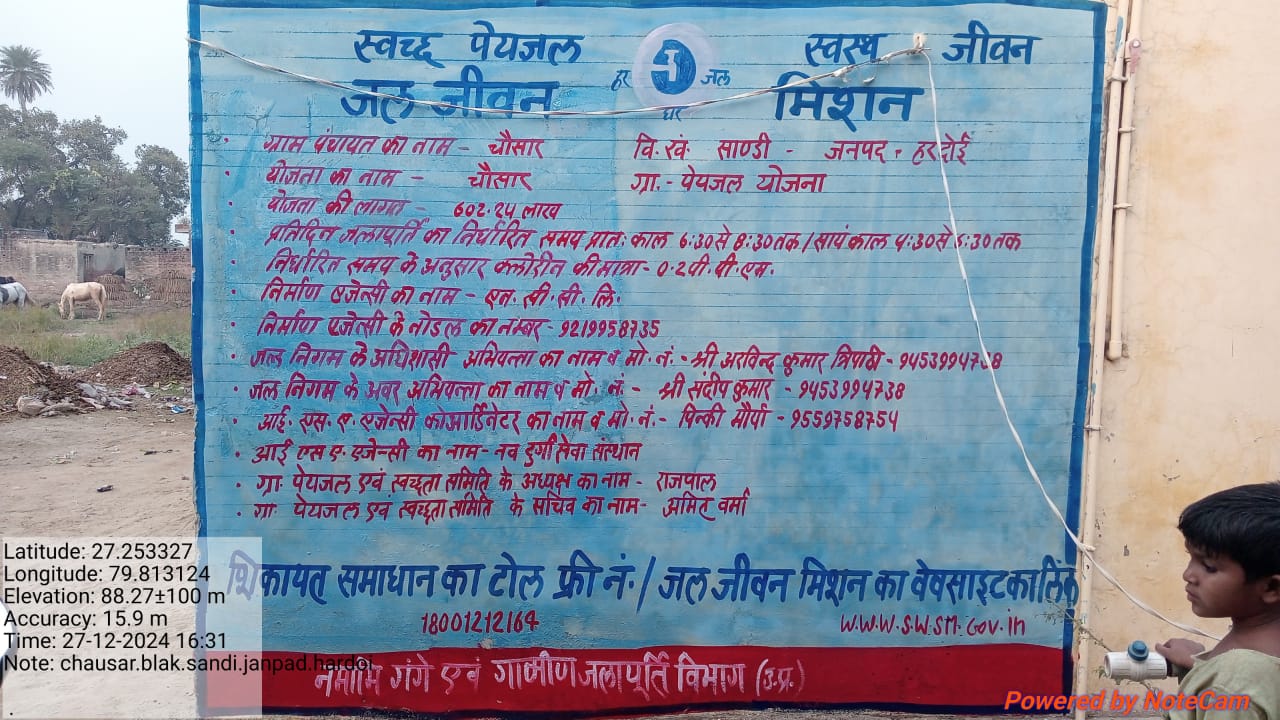 स्वच्छ पेयजल स्वस्थ जीवन
जल जीवन हर घर जल मिशन
• ग्राम पंचायत का नाम - चौसार वि. खं. साण्डी - जनपद - हरदोई
• योजना का नाम - चौसार ग्रा. - पेयजल योजना
• योजना की लागत - 602.24 लाख
• प्रतिदिन जलापूर्ति का निर्धारित समय प्रातः काल 6:30 से 8:30 तक / सायं काल 4:30 से 6:30 तक
• निर्धारित समय के अनुसार क्लोरीन की मात्रा - 0.2 पी. पी. एम.
• निर्माण एजेन्सी का नाम - एन. सी. सी. लि.
• निर्माण एजेन्सी के नोडल का नम्बर - 9219958735
• जल निगम के अधिशासी अभियन्ता का नाम व मो. नं. - श्री अरविन्द कुमार त्रिपाठी - 9453994738
• जल निगम के अवर अभियन्ता का नाम व मो. नं. - श्री संदीप कुमार - 9453994738
• आई. एस. ए. एजेन्सी कोआर्डिनेटर का नाम व मो. नं. - पिन्की मौर्या - 9559758754
• आई एस ए. एजेन्सी का नाम - नव दुर्गा सेवा संस्थान
• ग्रा. पेयजल एवं स्वच्छता समिति के अध्यक्ष का नाम - राजपाल
• ग्रा पेयजल एवं स्वच्छता समिति के सचिव का नाम - अमित वर्मा
शिकायत समाधान का टोल फ्री नं. / जल जीवन मिशन का वेबसाइट का लिंक
18001212164 W.W.W.S.W.S.M.Gov.in
नमामि गंगे एवं ग्रामीण जलापूर्ति विभाग (उ.प्र.)
Latitude: 27.253327
Longitude: 79.813124
Elevation: 88.27±100 m
Accuracy: 15.9 m
Time: 27-12-2024 16:31
Note: chausar.blak.sandi.janpad.hardoi
Powered by NoteCam